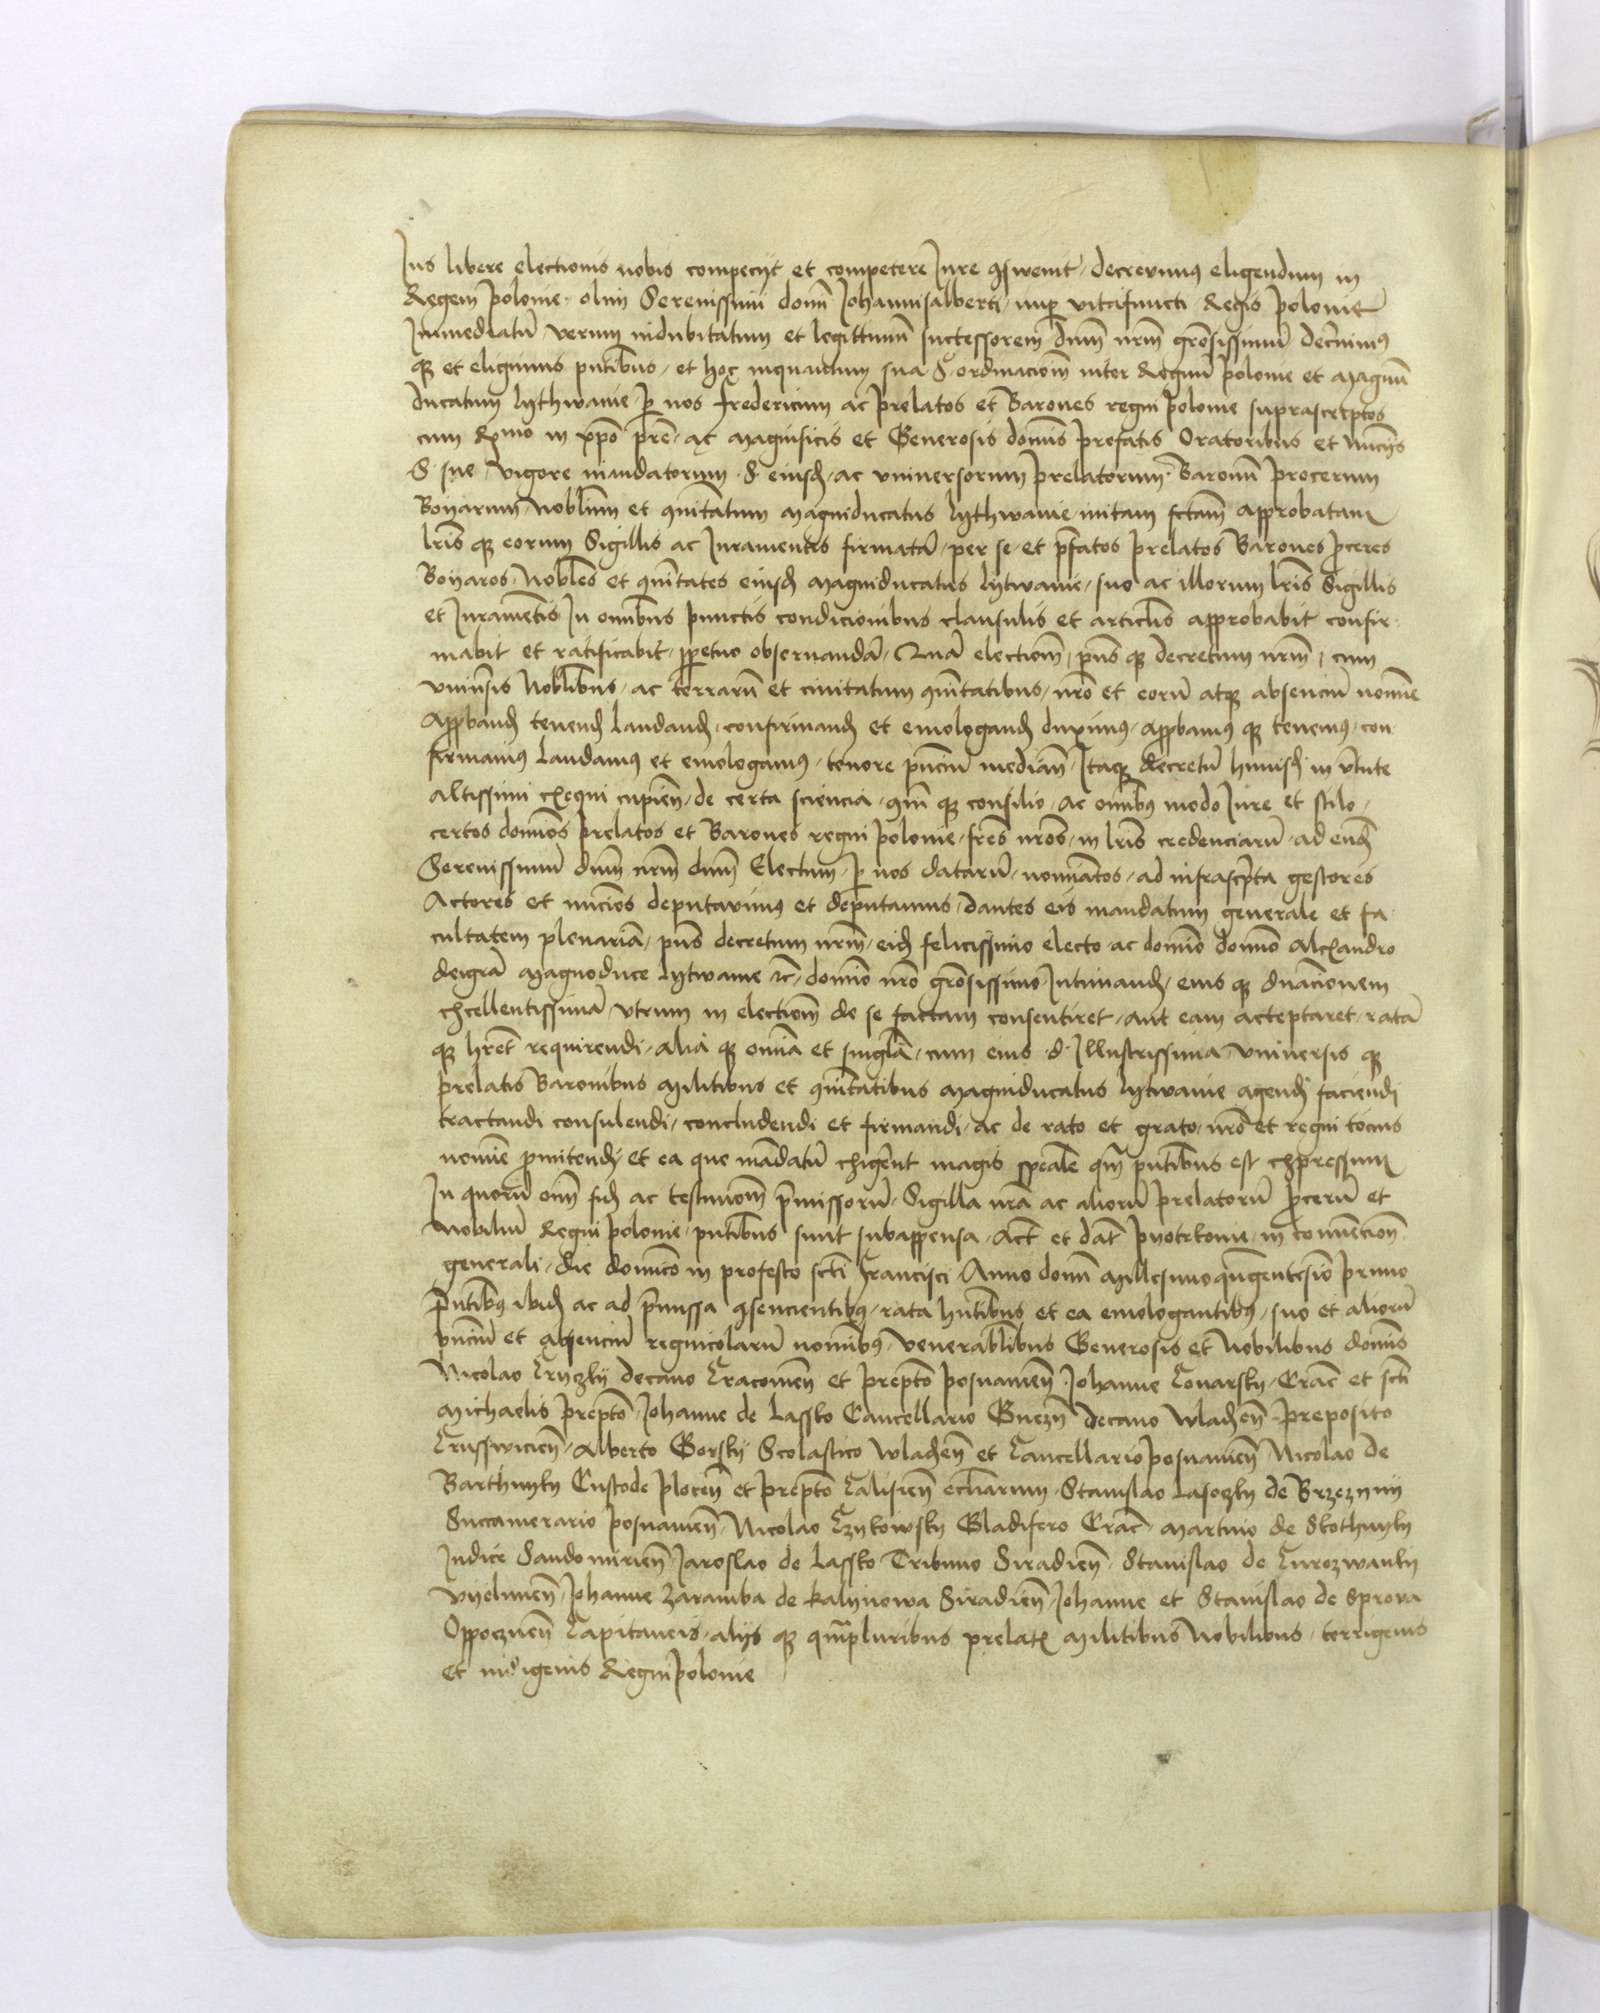 Jus libere electionis nobis compecijt et competere Jure ↄsweuit decreuimus eligendum in
Regem polonie olim Serenissimi domī Johannisalberti nuꝑ vitafuncti Regis polonie
Immediatū verum indubitatum et legittimū successorem dnm̄ nrm̄ grōsissimū decernimꝰ
qꝫ et eligimus pntibus et hoc inquantum sua S ordinacionē inter Regnū polonie et magnū
ducatum lythwanie ꝑ nos fredericum ac prelatos et Barones regni polonie suprascriptos
cum Rmo in xpo pre ac magnificis et Generosis domīs prefatis Oratoribus et nuncijs
S sue vigore mandatorum S eiusdē ac vniuersorum prelatorum Baronū procerum
Boyarum Nobliū et ↄmūitatum magniducatus lythwanie initam fctam̄ approbatam
lrīs qꝫ eorum Sigillis ac Juramentis firmatā per se et prefatos prelatos Barones proceres
Boyaros Nobles et ↄmūitates eiusdē magniducatus lytwanie suo ac illorum lrīs Sigillis
et Juramētis Jn omībus punctis condicionibus clausulis et articulis approbabit confir
mabit et ratificabit ꝑpetuo obseruandā Quā electionē pns qꝫ decretum nrm̄ cum
vniūsis Noblibus ac terrarū et ciuitatum ↄmūitatibus nrō et eorū atqꝫ absenciū nomine
approbandū tenendū laudandū confirmandū et emologandū duximus approbamus qꝫ tenemus con
firmamus laudamus et emologamus tenore pnciū mediante Itaqꝫ decretū huiusdī in vtute
altissimi exequi cupien̄ de certa sciencia ↄmūi qꝫ consilio ac omībus modo Jure et stilo
certos domīos prelatos et Barones regni polonie frēs nrōs in lrīs credenciarū ad eundē
Serenissimū dnm̄ nrm̄ dnm̄ Electum ꝑ nos datarū nomīatos ad infrascripta gestores
Actores et nuncios deputauimus et deputamus dantes eis mandatum generale et fa
cultatem plenariā pns decretum nrm̄ eidē felicissimo electo ac domīo domīo Alexandro
deigrā magnoduce lytwanie ꝛc domīo nrō grōsissimo Intimandū eius qꝫ dnacionem
excellentissimā vtrum in electionē de se factam consentiret aut eam acceptaret ratā
qꝫ hrēt requirendi alia qꝫ omīa et singla cum eius d Illustrissima vniuersis qꝫ
prelatis Baronibus militibus et ↄmūitatibus magniducatus lytwanie agendi faciendi
tractandi consulendi concludendi et firmandi ac de rato et grato nrō et regni tocius
nomīe promittendi et ea que mādatū exigerent magis speciale qm̄ pntibus est expressum
In quorū omī fidē ac testimoniū prēmissorū Sigilla nrā ac aliorū prelatorū procerū et
nobiliū Regni polonie pntibus sunt subappensa Act et dat pyotrkouie in conuencione
generali die domīco in profesto sctī Francisci Anno domī millesimoquīgentesimo primo
Pntibꝰ ibidē ac ad prēmissa ↄsencientibꝰ rata hntibus et ea emologantibꝰ suo et aliorū
pnciū et absenciū regnicolarū nomībꝰ venerablibus Generosis et Nobilibus domīs
Nicolao Cryczky decano Cracouien̄ et prepto posnanien̄ Johanne Conarsky Crac et sctī
Michaelis prepto Johanne de Lassko Cancellario Gnezn̄ decano wladislauien̄ preposito
Crusswicien̄ Alberto Gorsky Scolastico wladislauien̄ et Cancellario posnanien̄ Nicolao de
Barthnyky Custode plocen̄ et prepto Calisien̄ eccliarum Stanislao Lasoczky de Brzezyny
Succamerario posnanien̄ Nicolao Czykowsky Gladifero Crac martino de Skothnyky
Judice Sandomirien̄ Jaroslao de Lassko Tribuno Siradien̄ Stanislao de Curozwanky
vyelunen̄ Johanne Zaramba de Kalynowa Siradien̄ Johanne et Stanislao de Sprova
Oppocznen̄ Capitaneis alijs qꝫ qm̄pluribus prelatis militibus Nobilibus terrigenis
et indigenis Regnipolonie